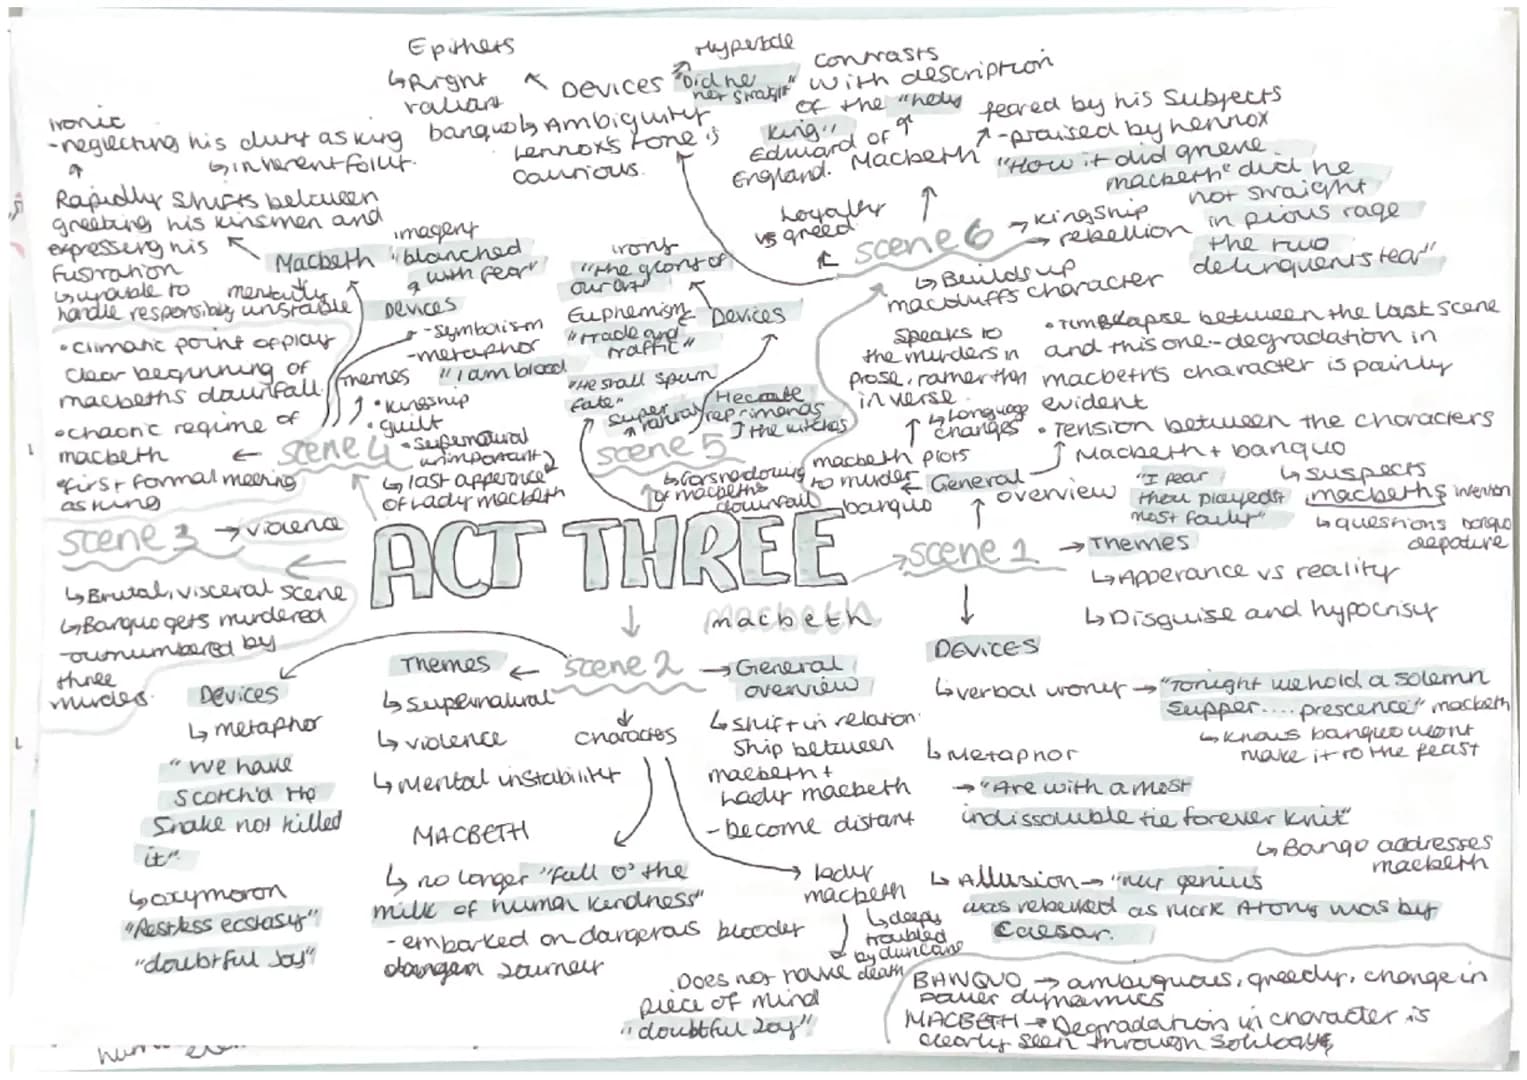 Epithets
↳Right
valiant
banquo
↖ DEVICES ↗
Hyperbole
"Did he
not straight"
↳Ambiguity
Lennox's tone is
contrasts
with description
of the "holy
king"
Edward of
England.
feared by his Subjects
Macbeth ↗ -praised by Lennox
"How it did grieve
macbeth" did he
not straight
in pious rage
the two
delinquents tear"
ironic
-neglecting his duty as king
↳inherent
Rapidly shifts between
greeting his kinsmen and
expressing his
fustration
↳unable to
handle responsibly
Macbeth
mentally
unstable
imagery
"blanched
with fear"
DEVICES
-Symbolism
-metaphor
"I am blood
Themes
• kingship
• guilt
• supernatural
unimportant
↳ last apperance
of Lady macbeth
• climatic point of play
clear beginning of
macbeths downfall
•chaotic regime of
macbeth
•first formal meeting
as king
← scene 4
irony
"the glory of
our art"
Euphemism
"Trade and
traffic"
Devices
"He shall spurn
fate"
supernatural
Hecate
reprimands
the witches
scene 5
of macbeths
downfall
Loyalty
vs greed
scene 6
→ kingship
→ rebellion
↳ Builds up
macduffs character
Speaks to
the murders in
prose, rather then
in verse
↳ Language
changes
macbeth plots
to murder
banquo
← General
overview
between the last scene
and this one--degradation in
macbeth's character is painly
evident
• Tension between the characters
Macbeth + banquo
↳ suspects
macbeths intention
↳ questions banquo
depature
"I fear
thou playedst
most fouly"
scene 3 → violence
↳Brutal, visceral scene
↳Banquo gets murdered
-ounumbered by
three
murders.
ACT THREE
macbeth
→scene 1 → Themes
↳Apperance vs reality
↳Disguise and hypocrisy
DEVICES
↳verbal irony → "Tonight we hold a solemn
supper.... prescence" macbeth
↳ knows banquo wont
make it to the feast
↳Metaphor
→ "Are with a most
indissoluble tie forever knit"
↳ Banqo addresses
macbeth
↳ Allusion → "my genius
was rebuked as Mark Atony was by
Caesar.
Themes ← scene 2 → General
overview
↳ supernatural
↳ violence
↳ Mental instability
characters
↳ shift in relation
Ship between
macbeth +
Lady macbeth
- become distant
DEVICES
↳ metaphor
"we have
scotch'd the
Snake not killed
it"
↳oxymoron
"Restless ecstasy"
"doubtful Joy"
MACBETH
↳ no longer "full o' the
milk of human kindness"
-embarked on dangerous bloody
Journey
→ lady
macbeth
↳deeply
troubled
by duncans
death
Does not have
piece of mind
"doubtful Joy"
BANQUO → ambiguous, greedy, change in
power dynamics
MACBETH → Degradation in character is
clearly seen through